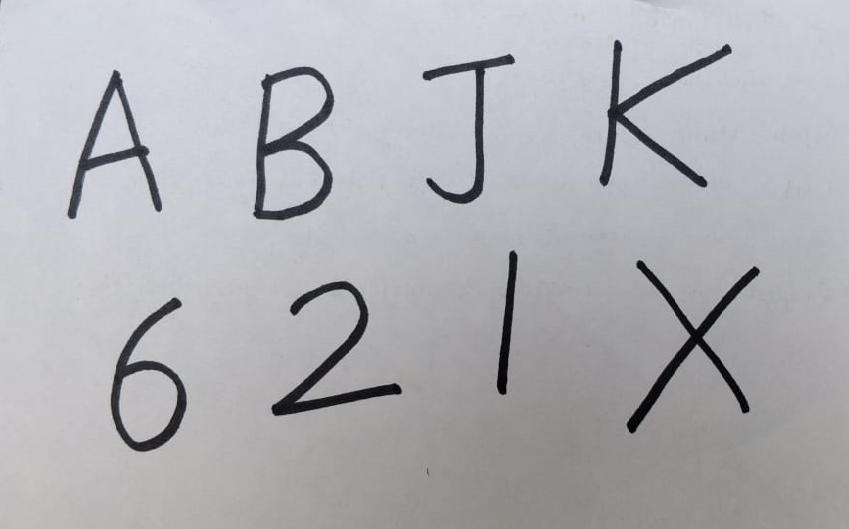 A B J K
6 2 1 X